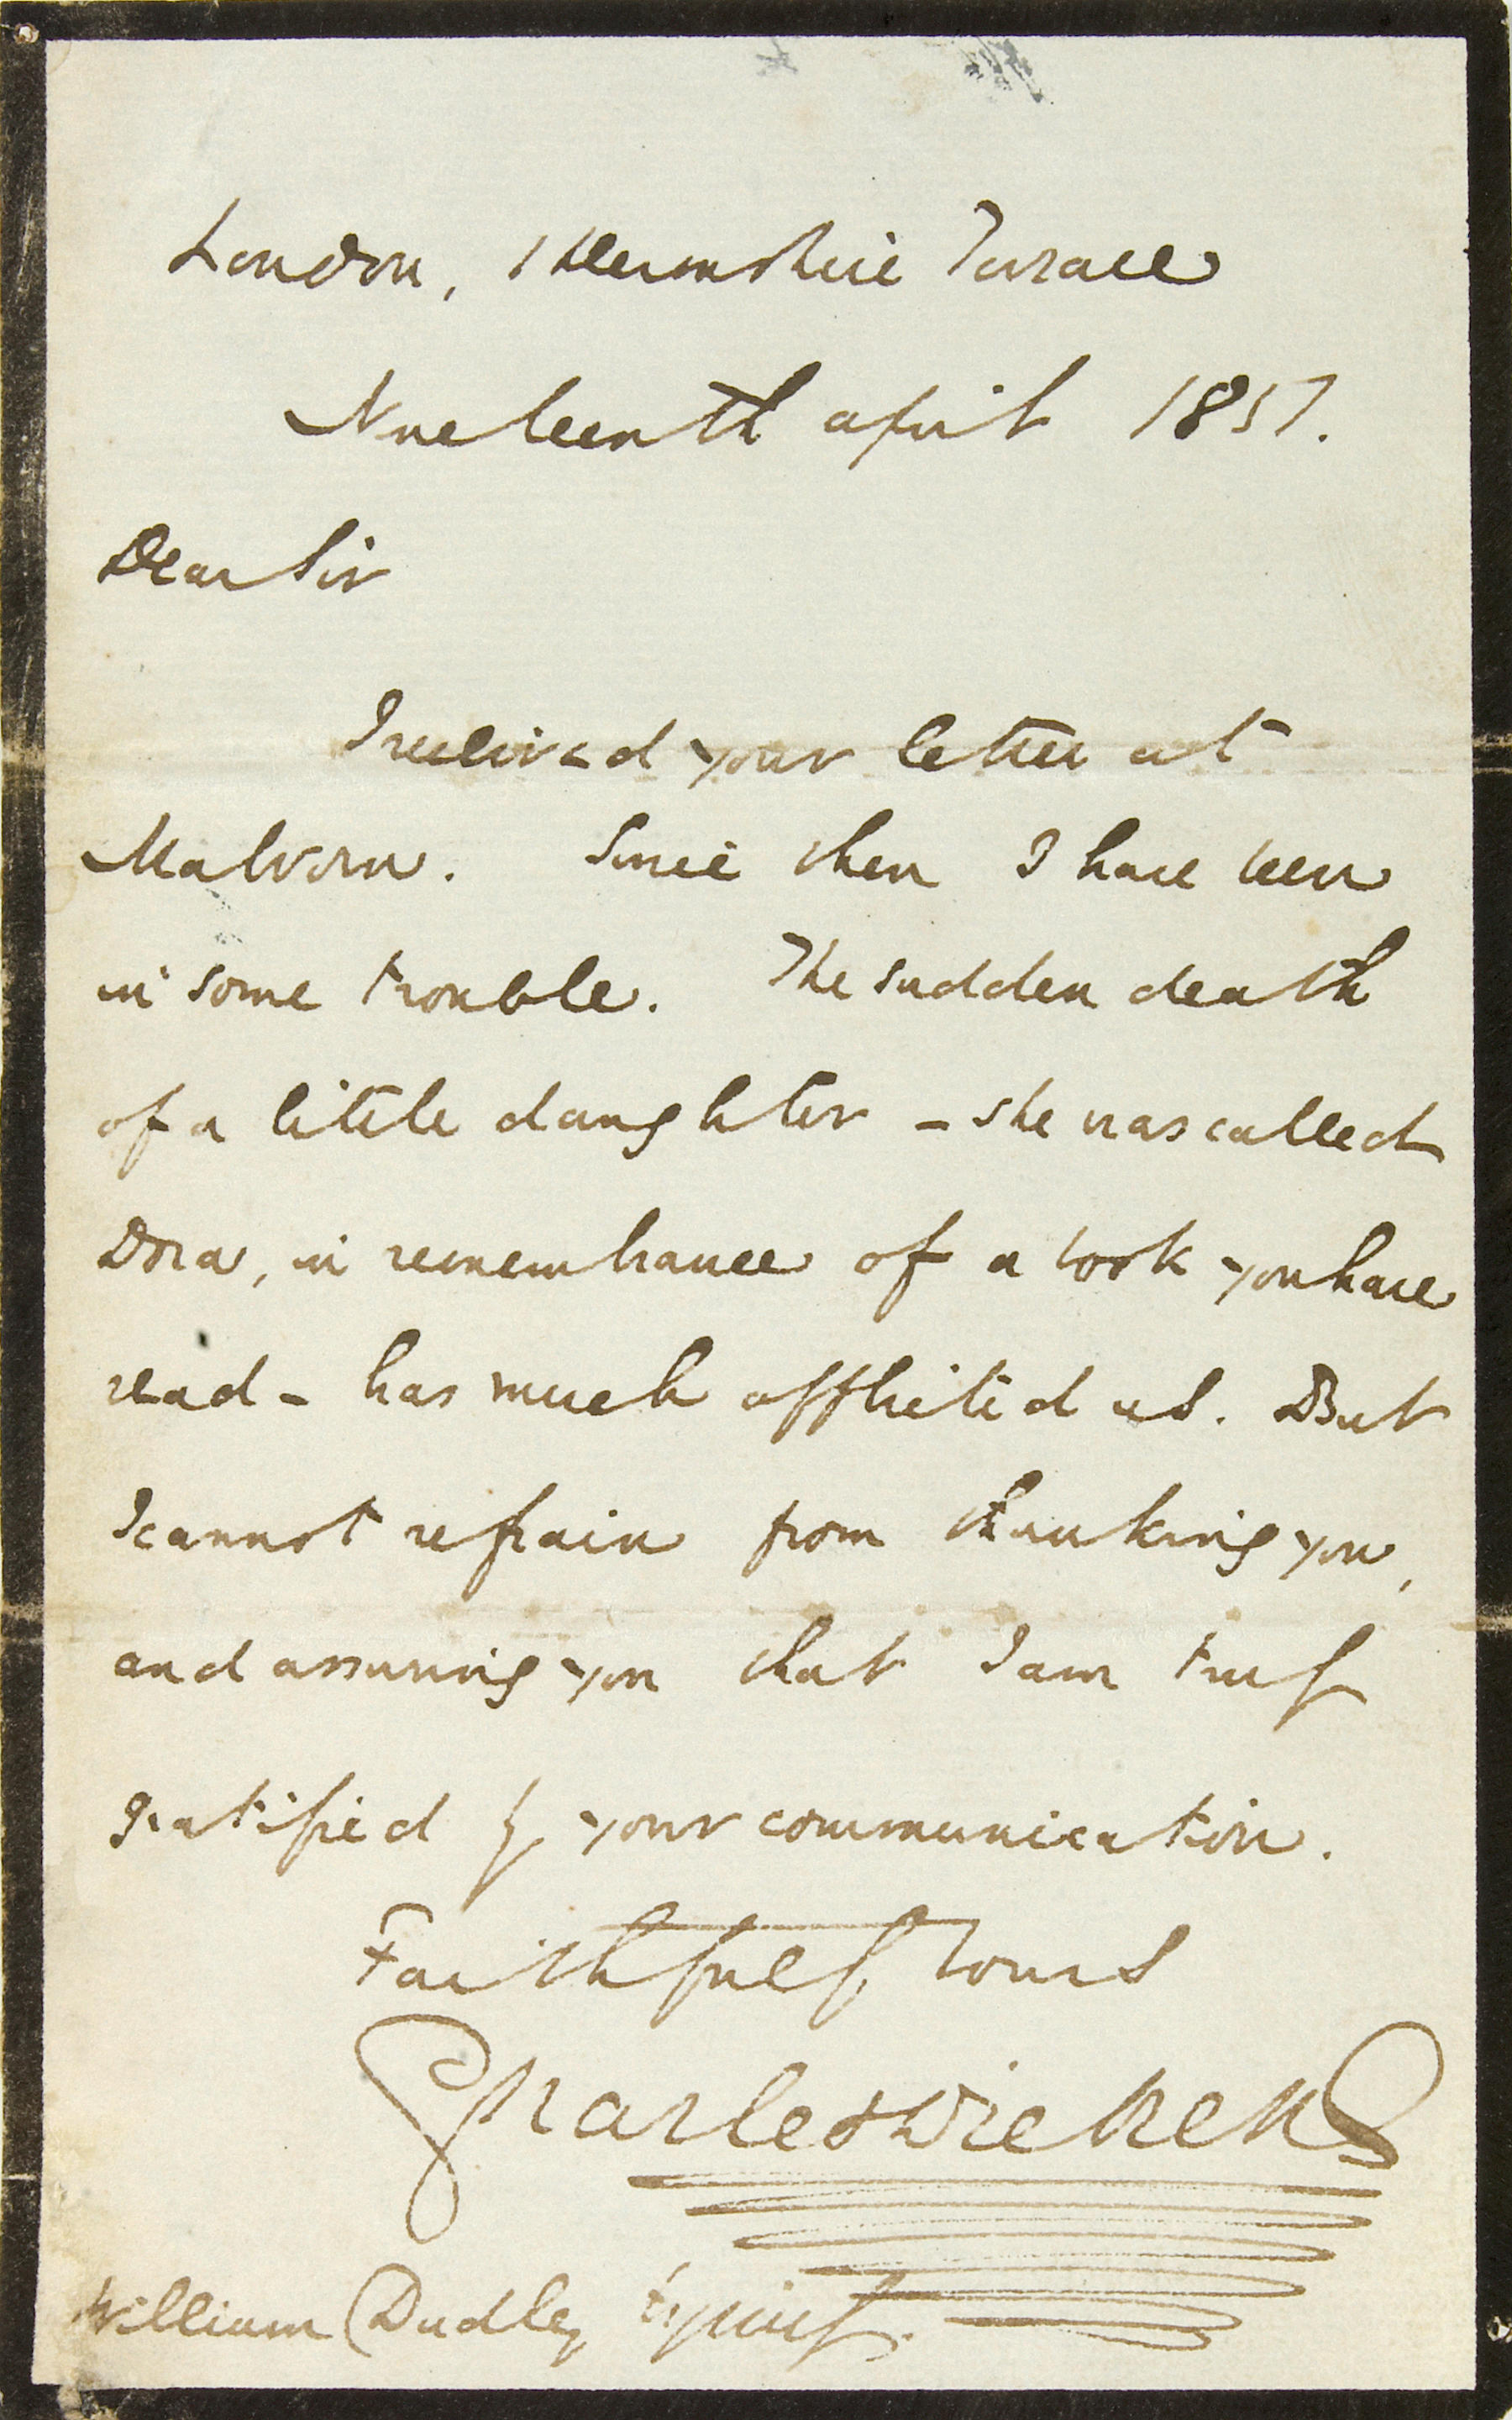 London, 1 Devonshire Terrace
Nineteenth April 1851.
Dear Sir
I received your letter at
Malvern. Since then I have been
in some trouble. The sudden death
of a little daughter – she was called
Dora, in remembrance of a book you have
read – has much afflicted us. But
I cannot refrain from thanking you,
and assuring you that I am truly
gratified by your communication.
Faithfully Yours
Charles Dickens
William Dudley Esquire.